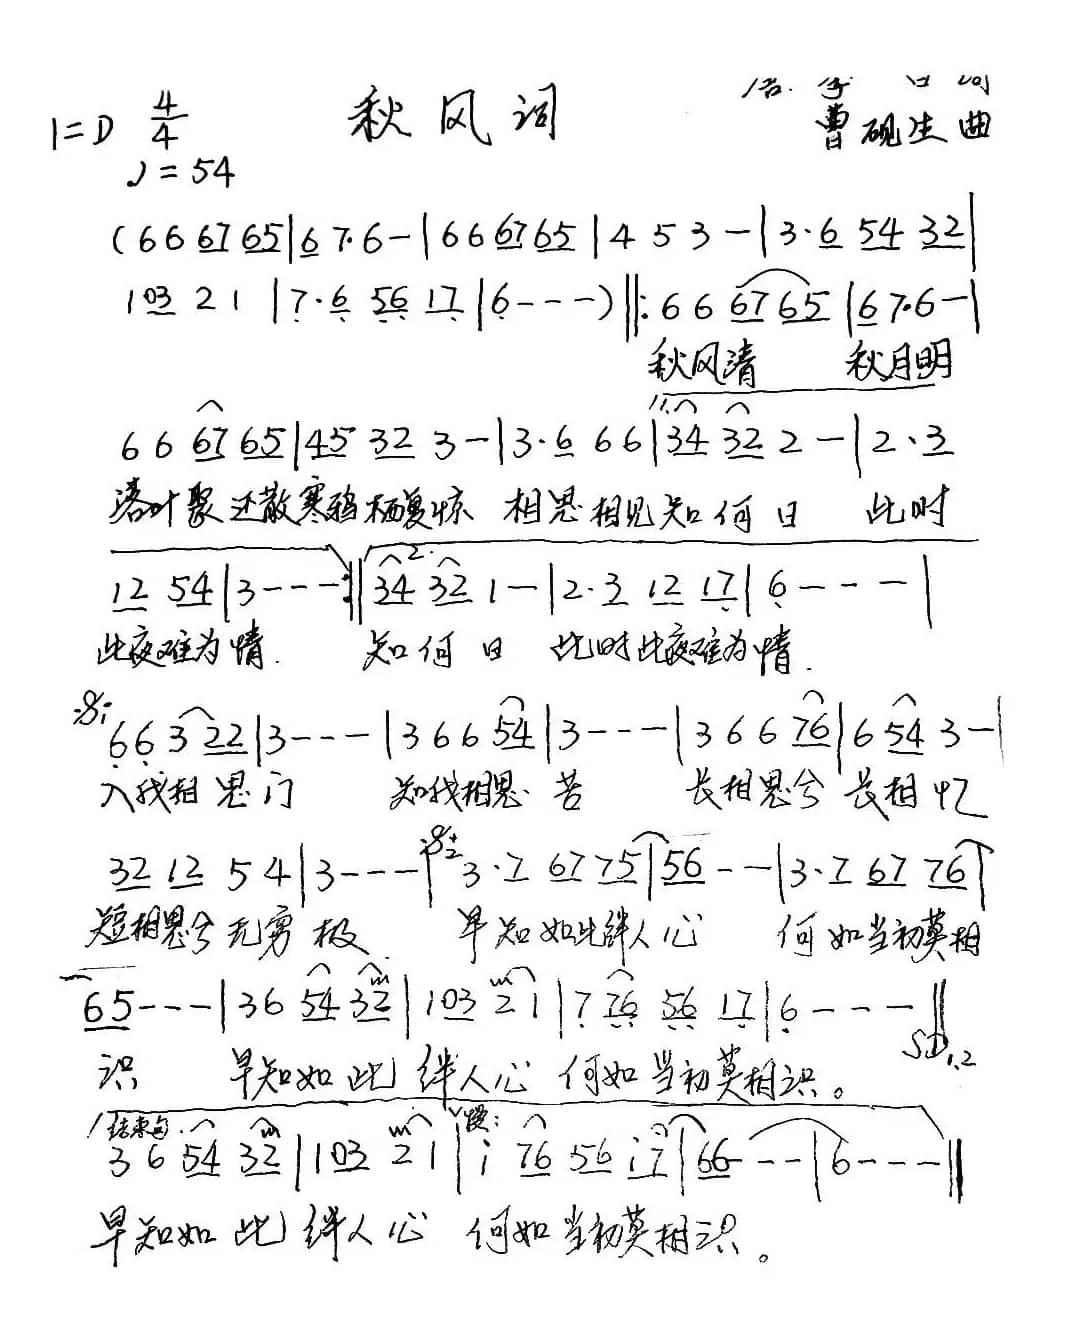 秋风词
1=D 4/4
李白词
曹砚生曲
♩=54
(6 6 67 65|6 7·6-|6 6 67 65|4 5 3-|3·6 54 32|
1 03 2 1|7·6 56 17|6---)‖:6 6 67 65|6 7·6-|
秋风清 秋月明
6 6 67 65|45 32 3-|3·6 6 6|34 32 2-|2·3
落叶聚还散寒鸦栖复惊 相思相见知何日 此时
12 54|3---:‖34 32 1-|2·3 12 17|6---|
此夜难为情. 知何日 此时此夜难为情.
6 6 3 22|3---|3 6 6 54|3---|3 6 6 76|6 54 3-|
入我相思门 知我相思苦 长相思兮长相忆
32 12 5 4|3---|3·7 67 75|56---|3·7 67 76|
短相思兮无穷极 早知如此绊人心 何如当初莫相
65---|3 6 54 32|1 03 2 1|7 76 56 17|6---‖
识 早知如此绊人心 何如当初莫相识。
结束句. 慢:
3 6 54 32|1 03 2 1|i 76 56 i7|66---|6---‖
早知如此绊人心 何如当初莫相识。